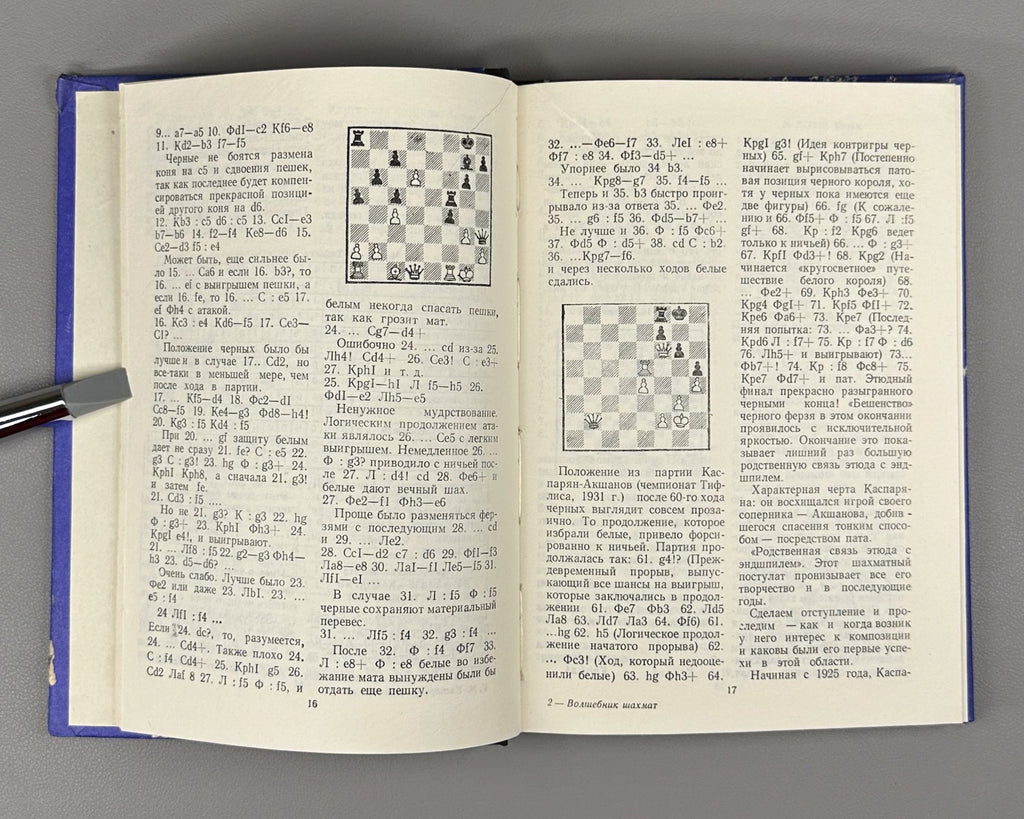 9... a7—a5 10. Фd1—c2 Kf6—e8
11. Kd2—b3 f7—f5
Черные не боятся размена
коня на c5 и сдвоения пешек,
так как последнее будет компен-
сироваться прекрасной позици-
ей другого коня на d6.
12. Kb3 : c5 d6 : c5 13. Cc1—e3
b7—b6 14. f2—f4 Ke8—d6 15.
Ce2—d3 f5 : e4
Может быть, еще сильнее бы-
ло 15. ... Ca6 и если 16. b3?, то
16. ... ef с выигрышем пешки, а
если 16. fe, то 16. ... C : e5 17.
ef Фh4 с атакой.
16. Kc3 : e4 Kd6—f5 17. Ce3—
C1? ...
Положение черных было бы
лучше и в случае 17.. Cd2, но
все-таки в меньшей мере, чем
после хода в партии.
17. ... Kf5—d4 18. Фc2—d1
Cc8—f5 19. Ke4—g3 Фd8—h4!
20. Kg3 : f5 Kd4 : f5
При 20. ... gf защиту белым
дает не сразу 21. fe? C : e5 22.
g3 C : g3! 23. hg Ф : g3+ 24.
Kph1 Kph8, а сначала 21. g3!
и затем fe.
21. Cd3 : f5 ....
Но не 21. g3? K : g3 22. hg
Ф : g3+ 23. Kph1 Фh3+ 24.
Kpg1 e4!, и выигрывают.
21. ... Лf8 : f5 22. g2—g3 Фh4—
h3 23. d5—d6? ...
Очень слабо. Лучше было 23.
Фe2 или даже 23. Лb1. 23. ...
e5 : f4
24 Лf1 : f4 ...
Если 24. dc?, то, разумеется,
24. ... Cd4+. Также плохо 24.
C : f4 Cd4+ 25. Kph1 g5 26.
Cd2 Лaf 8 27. Л : f5 Ф : f5, и
белым некогда спасать пешки,
так как грозит мат.
24. ... Cg7—d4+
Ошибочно 24. ... cd из-за 25.
Лh4! Cd4+ 26. Ce3! C : e3+
27. Kph1 и т. д.
25. Kpg1—h1 Л f5—h5 26.
Фd1—e2 Лh5—e5
Ненужное мудрствование.
Логическим продолжением ата-
ки являлось 26. ... Ce5 с легким
выигрышем. Немедленное 26. ...
Ф : g3? приводило с ничьей пос-
ле 27. Л : d4! cd 28. Фe6+ и
белые дают вечный шах.
27. Фe2—f1 Фh3—e6
Проще было разменяться фер-
зями с последующим 28. ... cd
и 29. ... Лe2.
28. Cc1—d2 c7 : d6 29. Фf1—f3
Лa8—e8 30. Лa1—f1 Лe5—f5 31.
Лf1—e1 ...
В случае 31. Л : f5 Ф : f5
черные сохраняют материальный
перевес.
31. ... Лf5 : f4 32. g3 : f4 ...
После 32. Ф : f4 Фf7 33.
Л : e8+ Ф : e8 белые во избе-
жание мата вынуждены были бы
отдать еще пешку.
16
32. ...—Фe6—f7 33. Лe1 : e8+
Фf7 : e8 34. Фf3—d5+ ...
Упорнее было 34 b3.
34. ... Kpg8—g7 35. f4—f5 ...
Теперь и 35. b3 быстро проиг-
рывало из-за ответа 35. ... Фe2.
35. ... g6 : f5 36. Фd5—b7+ ...
Не лучше и 36. Ф : f5 Фc6+
37. Фd5 Ф : d5+ 38. cd C : b2.
36. ...Kpg7—f6.
и через несколько ходов белые
сдались.
Положение из партии Кас-
парян-Акшанов (чемпионат Тиф-
лиса, 1931 г.) после 60-го хода
черных выглядит совсем проза-
ично. То продолжение, которое
избрали белые, привело форси-
рованно к ничьей. Партия про-
должалась так: 61. g4!? (Преж-
девременный прорыв, выпус-
кающий все шансы на выигрыш,
которые заключались в продол-
жении 61. Фe7 Фb3 62. Лd5
Лa8 63. Лd7 Лa3 64. Фf6) 61.
...hg 62. h5 (Логическое продол-
жение начатого прорыва) 62.
... Фc3! (Ход, который недооце-
нили белые) 63. hg Фh3+ 64.
2 — Волшебник шахмат
Kpg1 g3! (Идея контригры чер-
ных) 65. gf+ Kph7 (Постепенно
начинает вырисовываться пато-
вая позиция черного короля, хо-
тя у черных пока имеются еще
две фигуры) 66. fg (К сожале-
нию и 66. Фf5+ Ф : f5 67. Л :f5
gf+ 68. Kp : f2 Kpg6 ведет
только к ничьей) 66. ... Ф : g3+
67. Kpf1 Фd3+! 68. Kpg2 (На-
чинается «кругосветное» путе-
шествие белого короля) 68.
... Фe2+ 69. Kph3 Фe3+ 70.
Kpg4 Фg1+ 71. Kpf5 Фf1+ 72.
Kpe6 Фa6+ 73. Kpe7 (Послед-
няя попытка: 73. ... Фa3+? 74.
Kpd6 Л : f7+ 75. Kp : f7 Ф : d6
76. Лh5+ и выигрывают) 73...
Фb7+! 74. Kp : f8 Фc8+ 75.
Kpe7 Фd7+ и пат. Этюдный
финал прекрасно разыгранного
черными конца! «Бешенство»
черного ферзя в этом окончании
проявилось с исключительной
яркостью. Окончание это пока-
зывает лишний раз большую
родственную связь этюда с энд-
шпилем.
Характерная черта Каспаря-
на: он восхищался игрой своего
соперника — Акшанова, добив -
шегося спасения тонким спосо-
бом — посредством пата.
«Родственная связь этюда с
эндшпилем». Этот шахматный
постулат пронизывает все его
творчество и в последующие
годы.
Сделаем отступление и про-
следим — как и когда возник
у него интерес к композиции
и каковы были его первые успе-
хи в этой области.
Начиная с 1925 года, Каспа-
17